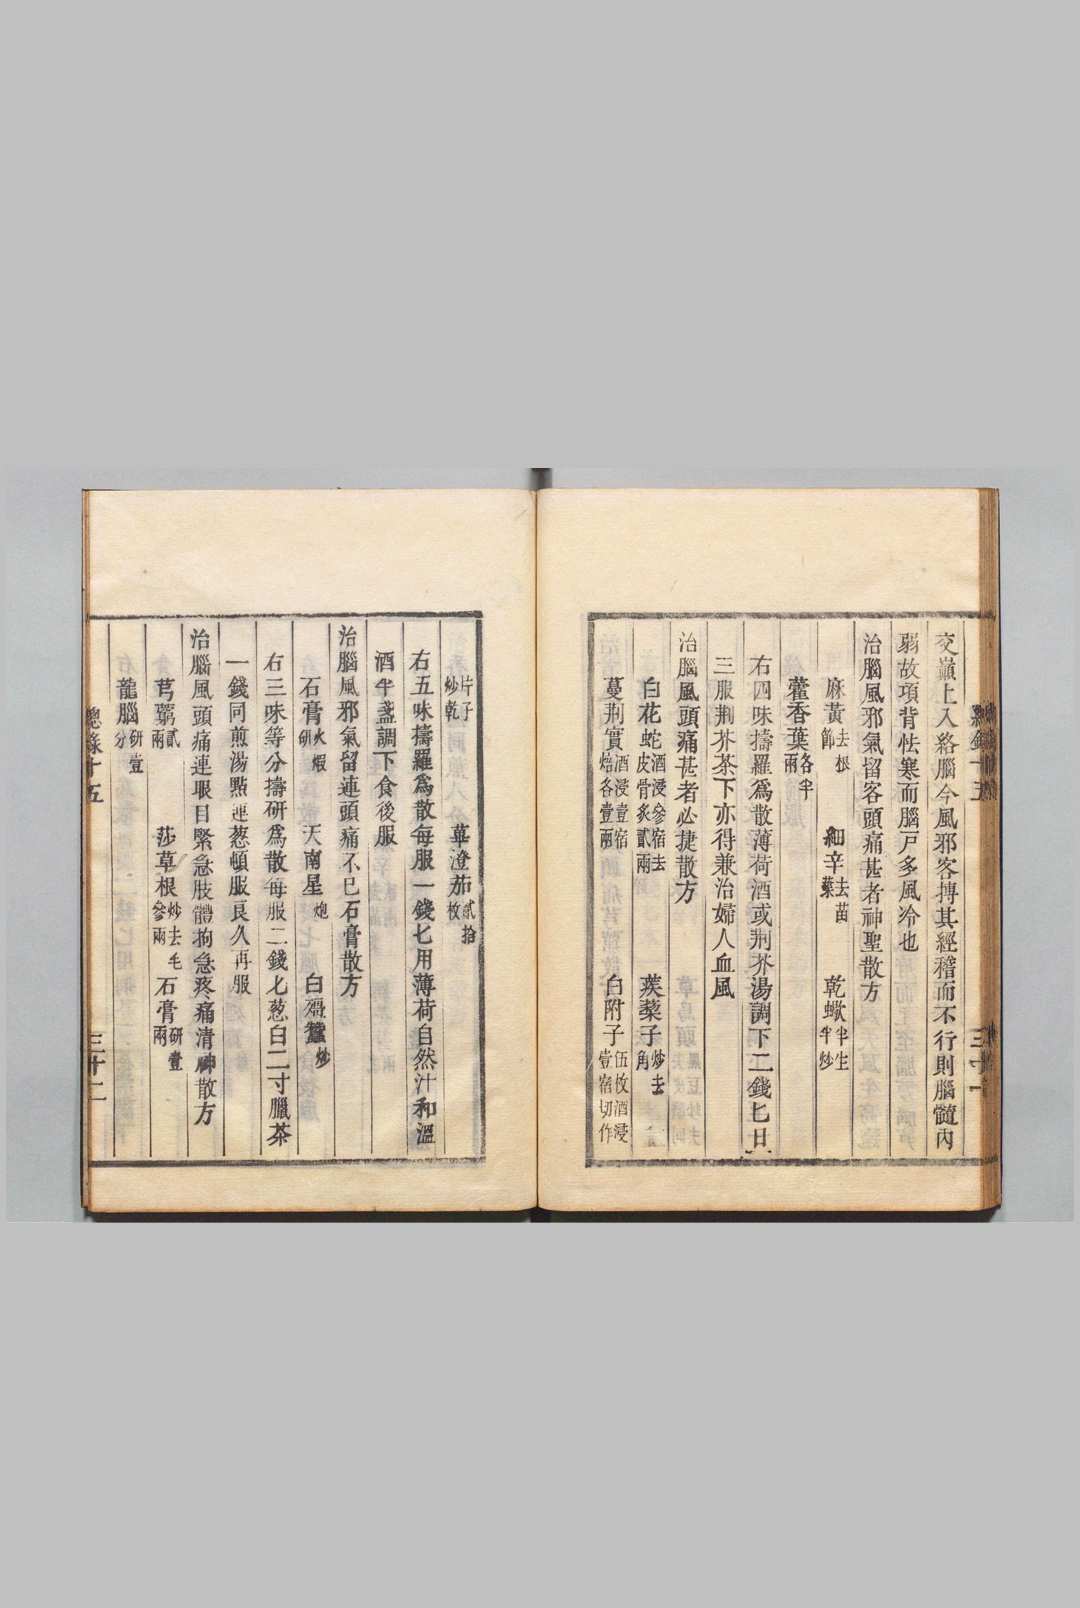 交巔上入絡腦今風邪客搏其經稽而不行則腦髓內
弱故項背怯寒而腦戸多風冷也
治腦風邪氣留客頭痛甚者神聖散方
麻黃去根節 細辛去苗葉 乾蠍半生半炒
藿香葉各半兩
右四味擣羅爲散薄荷酒或荆芥湯調下二錢匕日
三服荆芥茶下亦得兼治婦人血風
治腦風頭痛甚者必捷散方
白花蛇酒浸參宿去皮骨炙貳兩 蒺藜子炒去角
蔓荆實酒浸壹宿焙各壹兩 白附子伍枚酒浸壹宿切作
片子炒乾 蓽澄茄貳拾枚
右五味擣羅爲散每服一錢匕用薄荷自然汁和溫
酒半盞調下食後服
治腦風邪氣留連頭痛不已石膏散方
石膏火煅研 天南星炮 白殭蠶炒
右三味等分擣研爲散每服二錢匕葱白二寸臘茶
一錢同煎湯點連葱頓服良久再服
治腦風頭痛連眼目緊急肢體拘急疼痛清神散方
芎藭貳兩 莎草根炒去毛參兩 石膏研壹兩
龍腦研壹分
總錄十五
三十二